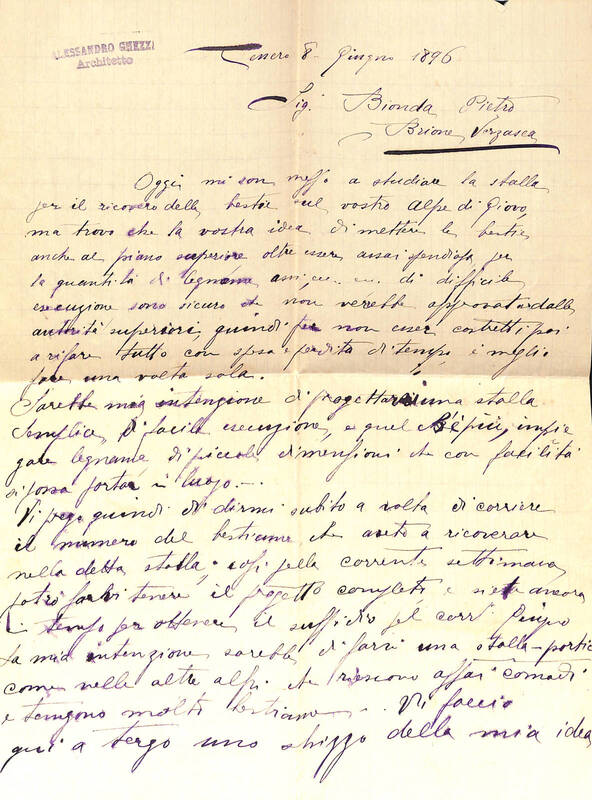 ALESSANDRO GHEZZI
Architetto
Tenero 8 Giugno 1896
Sig. Bionda Pietro
Brione Verzasca
Oggi mi son messo a studiare la stalla
per il ricovero delle bestie sul vostro alpe di Giovo,
ma trovo che la vostra idea di mettere le bestie
anche al piano superiore oltre essere assai spendiosa per
la quantità di legname di difficile
esecuzione sono sicuro che non verebbe approvata dalle
autorità superiori, quindi per non esser costretti poi
a rifare tutto con spesa e perdita di tempo, è meglio
fare una volta sola.
Sarebbe mia intenzione di progettare una stalla
semplice, di facile esecuzione, e quel ch'è più, impie
gare legname di piccole dimensioni che con facilità
si possa portar in luogo.
Vi prego quindi di dirmi subito a volta di corriere
il numero del bestiame che avete a ricoverare
nella detta stalla, così nella corrente settimana
potrò farvi tenere il progetto completo, e siete ancora
in tempo per ottenere il sussidio pel corr. Giugno
La mia intenzione sarebbe di farvi una stalla-portic
come nelle altre alpi che riescono assai comodi
e tengono molto bestiame. Vi faccio
qui a tergo uno schizzo della mia idea